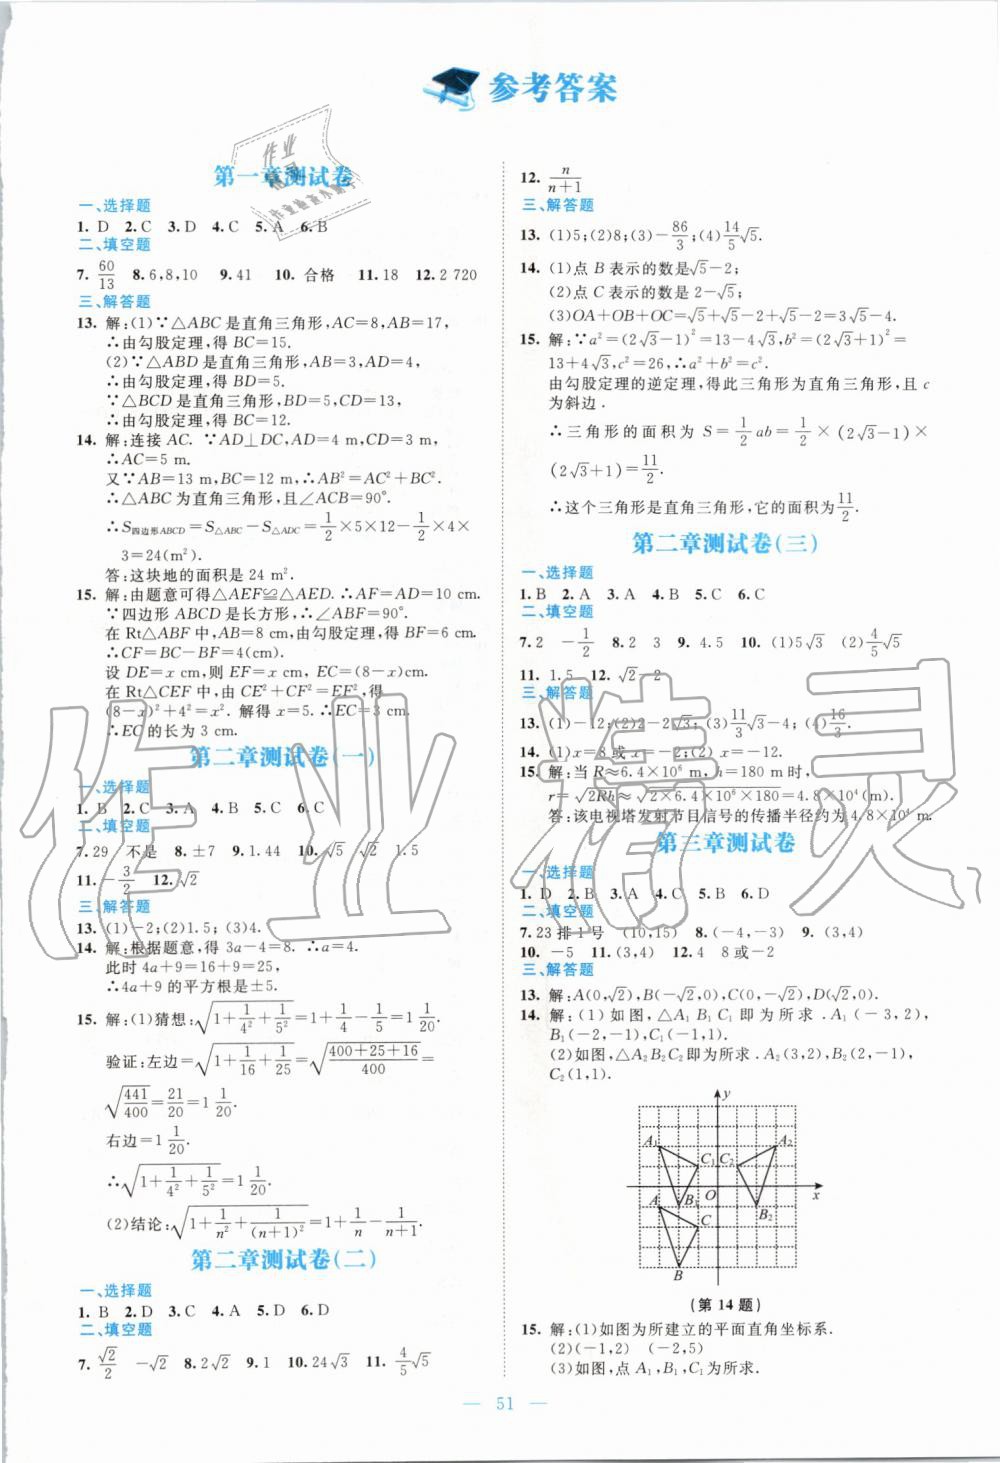 参考答案
第一章测试卷
一、选择题
1. D 2. C 3. D 4. C 5. A 6. B
二、填空题
7. 60/13 8. 6,8,10 9. 41 10. 合格 11. 18 12. 2 720
三、解答题
13. 解:(1)∵△ABC是直角三角形,AC=8,AB=17,
∴由勾股定理,得BC=15.
(2)∵△ABD是直角三角形,AB=3,AD=4,
∴由勾股定理,得BD=5.
∵△BCD是直角三角形,BD=5,CD=13,
∴由勾股定理,得BC=12.
14. 解:连接AC. ∵AD⊥DC,AD=4 m,CD=3 m,
∴AC=5 m.
又∵AB=13 m,BC=12 m,∴AB²=AC²+BC².
∴△ABC为直角三角形,且∠ACB=90°.
∴S四边形ABCD=S△ABC-S△ADC=1/2×5×12-1/2×4×
3=24(m²).
答:这块地的面积是24 m².
15. 解:由题意可得△AEF≌△AED. ∴AF=AD=10 cm.
∵四边形ABCD是长方形,∴∠ABF=90°.
在Rt△ABF中,AB=8 cm,由勾股定理,得BF=6 cm.
∴CF=BC-BF=4(cm).
设DE=x cm,则EF=x cm,EC=(8-x)cm.
在Rt△CEF中,由CE²+CF²=EF²,得
(8-x)²+4²=x². 解得x=5. ∴EC=3 cm.
∴EC的长为3 cm.
第二章测试卷(一)
一、选择题
1. B 2. C 3. A 4. B 5. C 6. C
二、填空题
7. 29 不是 8. ±7 9. 1.44 10. √5 √2 1.5
11. -3/2 12. √2
三、解答题
13. (1)-2;(2)1.5;(3)4.
14. 解:根据题意,得3a-4=8. ∴a=4.
此时4a+9=16+9=25,
∴4a+9的平方根是±5.
15. 解:(1)猜想:√(1+1/4²+1/5²)=1+1/4-1/5=1 1/20.
验证:左边=√(1+1/16+1/25)=√((400+25+16)/400)=
√(441/400)=21/20=1 1/20.
右边=1 1/20.
∴√(1+1/4²+1/5²)=1 1/20.
(2)结论:√(1+1/n²+1/(n+1)²)=1+1/n-1/(n+1).
第二章测试卷(二)
一、选择题
1. B 2. D 3. C 4. A 5. D 6. D
二、填空题
7. √2/2 -√2 8. 2√2 9. 1 10. 24√3 11. 4/5√5
12. n/(n+1)
三、解答题
13. (1)5;(2)8;(3)-86/3;(4)14/5√5.
14. (1)点B表示的数是√5-2;
(2)点C表示的数是2-√5;
(3)OA+OB+OC=√5+√5-2+√5-2=3√5-4.
15. 解:∵a²=(2√3-1)²=13-4√3,b²=(2√3+1)²=
13+4√3,c²=26,∴a²+b²=c².
由勾股定理的逆定理,得此三角形为直角三角形,且c
为斜边.
∴三角形的面积为S=1/2ab=1/2×(2√3-1)×
(2√3+1)=11/2.
∴这个三角形是直角三角形,它的面积为11/2.
第二章测试卷(三)
一、选择题
1. B 2. A 3. A 4. B 5. C 6. C
二、填空题
7. 2 -1/2 8. 2 3 9. 4.5 10. (1)5√3 (2)4/5√5
11. 1.5 12. √2-2
三、解答题
13. (1)-12;(2)2-2√3;(3)11/3√3-4;(4)16/3.
14. (1)x=8或x=-2;(2)x=-12.
15. 解:当R≈6.4×10⁶ m,h=180 m时,
r=√2Rh≈√(2×6.4×10⁶×180)=4.8×10⁴(m).
答:该电视塔发射节目信号的传播半径约为4.8×10⁴ m.
第三章测试卷
一、选择题
1. D 2. B 3. A 4. C 5. B 6. D
二、填空题
7. 23排1号 (10,15) 8. (-4,-3) 9. (3,4)
10. -5 11. (3,4) 12. 4 8或-2
三、解答题
13. 解:A(0,√2),B(-√2,0),C(0,-√2),D(√2,0).
14. 解:(1)如图,△A₁B₁C₁即为所求.A₁(-3,2),
B₁(-2,-1),C₁(-1,1).
(2)如图,△A₂B₂C₂即为所求.A₂(3,2),B₂(2,-1),
C₂(1,1).
y
A₁ A₂
C₁ C₂
A B₁ O B₂ x
C
B
(第14题)
15. 解:(1)如图为所建立的平面直角坐标系.
(2)(-1,2) (-2,5)
(3)如图,点A₁,B₁,C₁为所求.
51
作业精灵